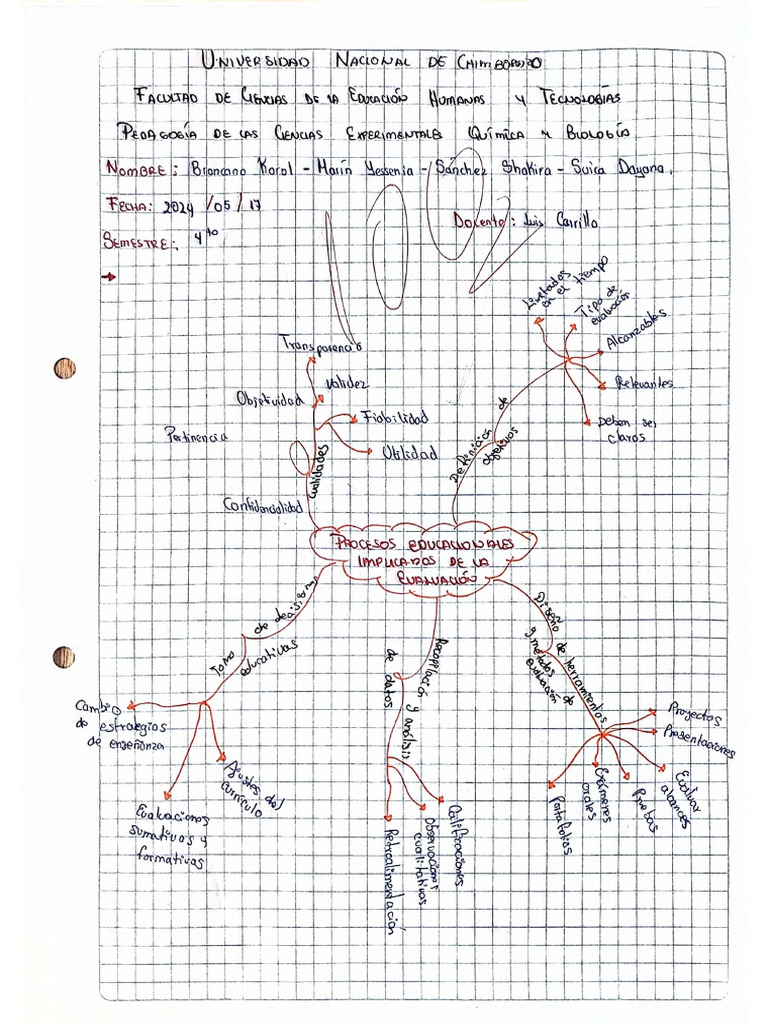 UNIVERSIDAD NACIONAL DE CHIMBORAZO
FACULTAD DE CIENCIAS DE LA EDUCACIÓN HUMANAS Y TECNOLOGÍAS
PEDAGOGÍA DE LAS CIENCIAS EXPERIMENTALES QUÍMICA Y BIOLOGÍA
NOMBRE: Broncano Karol - Marín Yessenia - Sánchez Shakira - Suica Dayana.
FECHA: 2024 /05/ 17
Docente: Luis Carrillo
SEMESTRE: 4to
Limitados
en el tiempo
Tipo de
evaluación
Alcanzables
Relevantes
Deben ser
claros
Definición de
objetivos
Transparencia
Validez
Objetividad
Fiabilidad
Pertinencia
Utilidad
Cualidades
Confidencialidad
PROCESOS EDUCACIONALES
IMPLICADOS DE LA
EVALUACIÓN
Toma de decisiones
educativas
Cambio
de estrategias
de enseñanza
Ajustes del
currículo
Evaluaciones
sumativas y
formativas
Recopilación y análisis
de datos
Retroalimentación
Observaciones
cualitativas
Calificaciones
Diseño de herramientas
y métodos de
evaluación
Proyectos
Presentaciones
Evaluar
alcances
Pruebas
Exámenes
orales
Portafolios